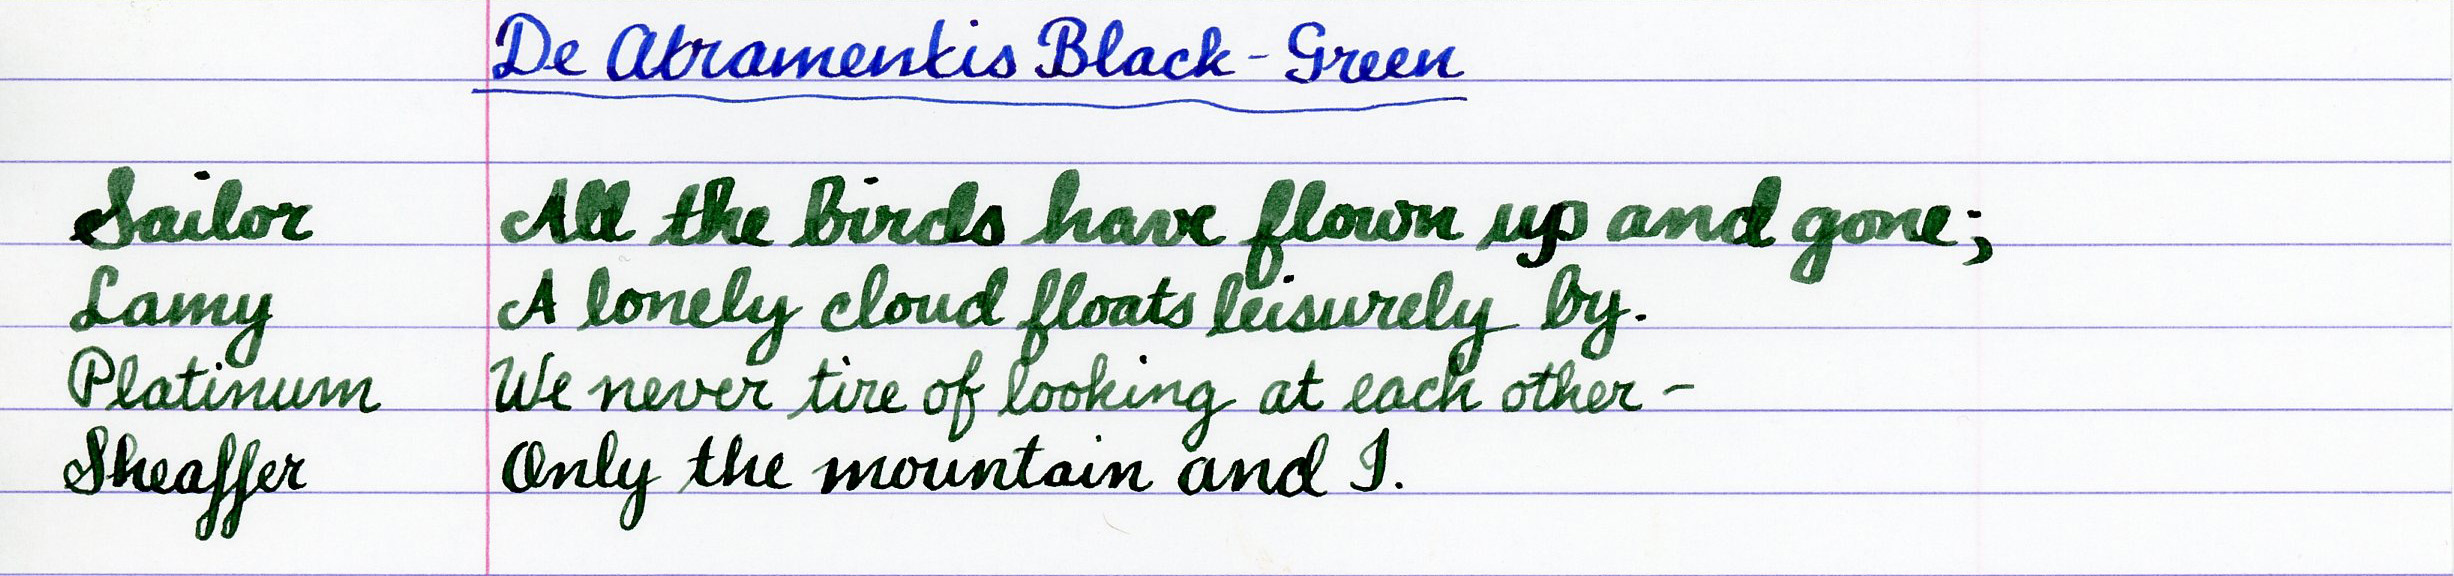 De Atramentis Black-Green
Sailor All the birds have flown up and gone;
Lamy A lonely cloud floats leisurely by.
Platinum We never tire of looking at each other -
Sheaffer Only the mountain and I.